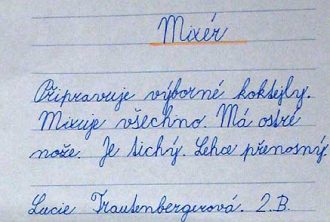 Mixér
Připravuje výborné koktejly.
Mixuje všechno. Má ostré
nože. Je tichý. Lehce přenosný
Lucie Trautenbergerová. 2.B.